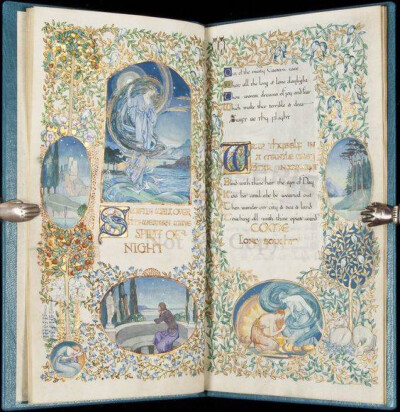 SWIFTLY WALK OVER
THE WESTERN WAVE
SPIRIT OF
NIGHT
Out of the misty Eastern cave
Where all the long & lone daylight
Thou wovest dreams of joy and fear
Which make thee terrible & dear
Swift be thy flight
in
a mantle gray
Blind with thine hair the eyes of Day
Kiss her until she be wearied out
Then wander o'er city & sea & land
Touching all with thine opiate wand
COME
Long sought